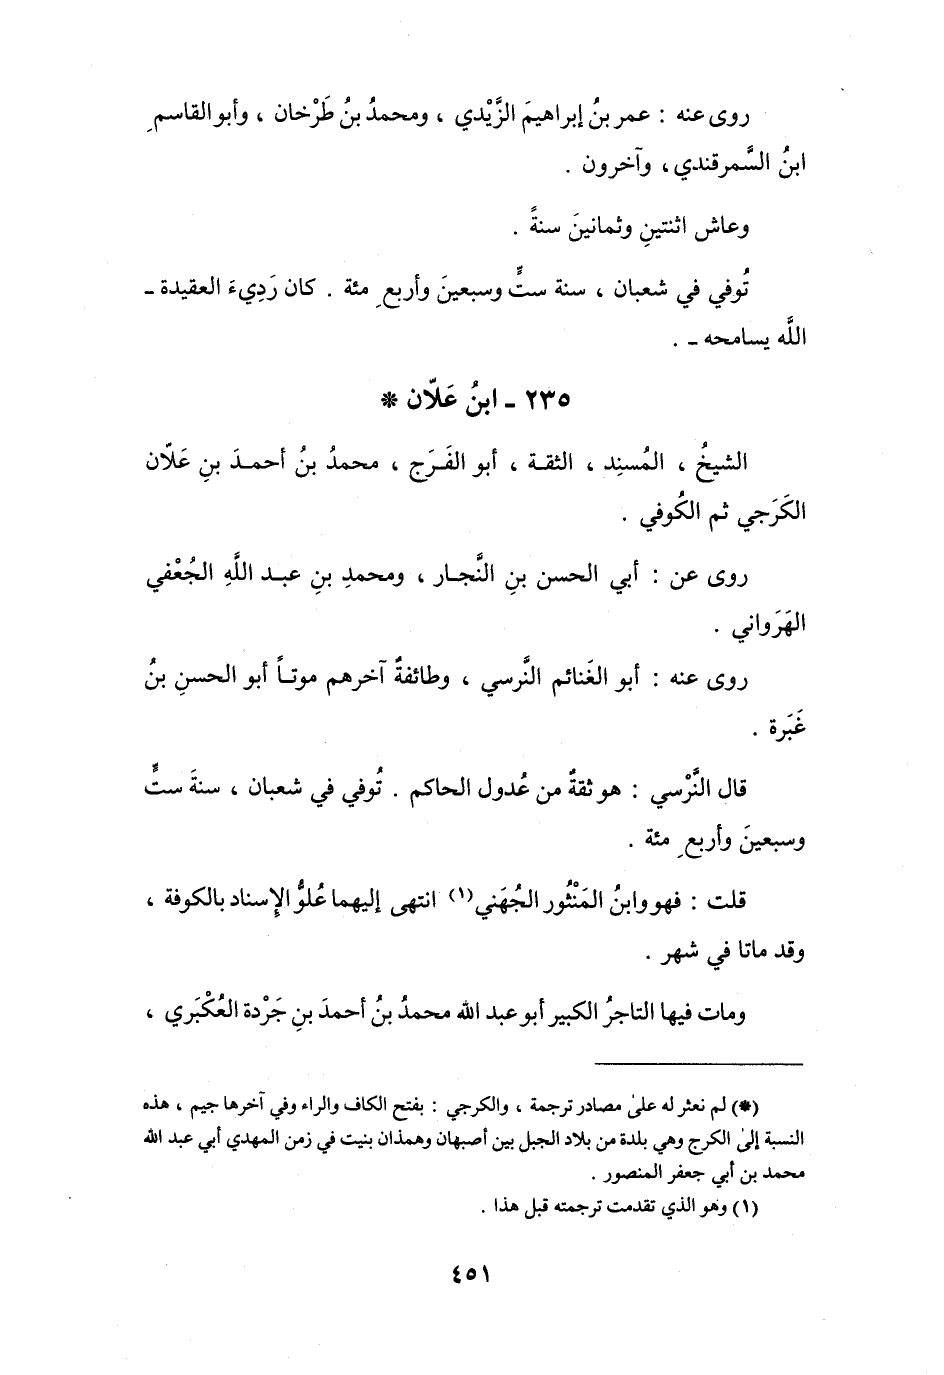 روى عنه : عمر بنُ إبراهيمَ الزَّيْدي ، ومحمدُ بنُ طَرْخان ، وأبو القاسمِ
ابنُ السَّمرقندي، وآخرون .
وعاش اثنتينِ وثمانينَ سنةً .
تُوفي في شعبان ، سنة ستٍّ وسبعينَ وأربعِ مئة . كان رَدِيءَ العقيدة ـ
اللَّه يسامحه ـ .
٢٣٥ ـ ابنُ عَلّان *
الشيخُ ، المُسنِد ، الثقة ، أبو الفَرَج ، محمدُ بنُ أحمدَ بنِ عَلّان
الكَرَجي ثم الكُوفي .
روى عن : أبي الحسن بنِ النَّجار ، ومحمدِ بنِ عبد اللَّهِ الجُعْفي
الهَرَواني .
روى عنه : أبو الغَنائم النَّرسي ، وطائفةٌ آخرهم موتاً أبو الحسنِ بنُ
غَبَرة .
قال النَّرْسي : هو ثقةٌ من عُدول الحاكم . تُوفي في شعبان ، سنةَ ستٍّ
وسبعينَ وأربعِ مئة .
قلت : فهو وابنُ المَنْثُور الجُهَني(١) انتهى إليهما عُلوُّ الإِسناد بالكوفة ،
وقد ماتا في شهر .
ومات فيها التاجرُ الكبير أبو عبد الله محمدُ بنُ أحمدَ بنِ جَرْدة العُكْبَري ،
(*) لم نعثر له على مصادر ترجمة ، والكرجي : بفتح الكاف والراء وفي آخرها جيم ، هذه
النسبة إلى الكرج وهي بلدة من بلاد الجبل بين أصبهان وهمذان بنيت في زمن المهدي أبي عبد الله
محمد بن أبي جعفر المنصور .
(١) وهو الذي تقدمت ترجمته قبل هذا .
٤٥١